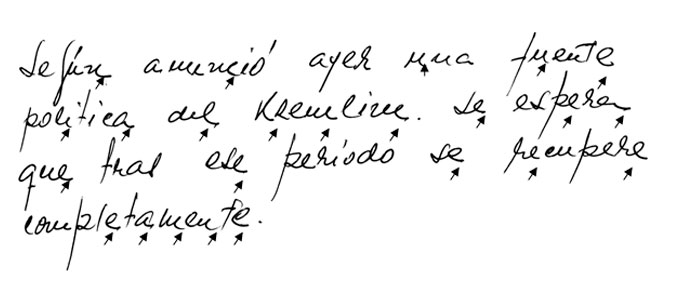 Según anunció ayer una fuente
política del Kremlim. Se espera
que tras ese período se recupere
completamente.